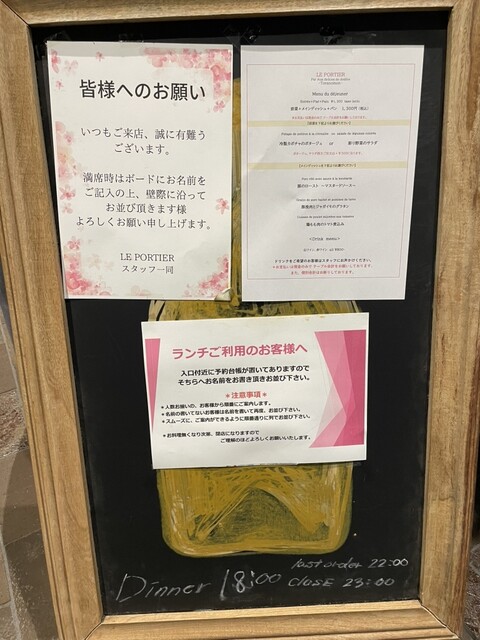 皆様へのお願い
いつもご来店、誠に有難う
ございます。
満席時はボードにお名前を
ご記入の上、壁際に沿って
お並び頂きます様
よろしくお願い申し上げます。
LE PORTIER
スタッフ一同
LE PORTIER
Menu du déjeuner
前菜+メインディッシュ+パン 1,300円(税込)
冷製カボチャのポタージュ or 彩り野菜のサラダ
豚のロースト マスタードソース
鶏もも肉のトマト煮込み
ドリンクをご希望のお客様はスタッフにお声がけください。
ランチご利用のお客様へ
入口付近に予約台帳が置いてありますので
そちらへお名前をお書き頂きお並び下さい。
*注意事項*
*人数お揃いの、お客様から順番にご案内します。
*名前の書いてないお客様は名前を書いて再度、お並び下さい。
*スムーズに、ご案内ができるように順番通りに列でお並び下さい。
*お料理無くなり次第、閉店になりますので
ご理解のほどよろしくお願いいたします。
Last order 22:00
Dinner 18:00 close 23:00